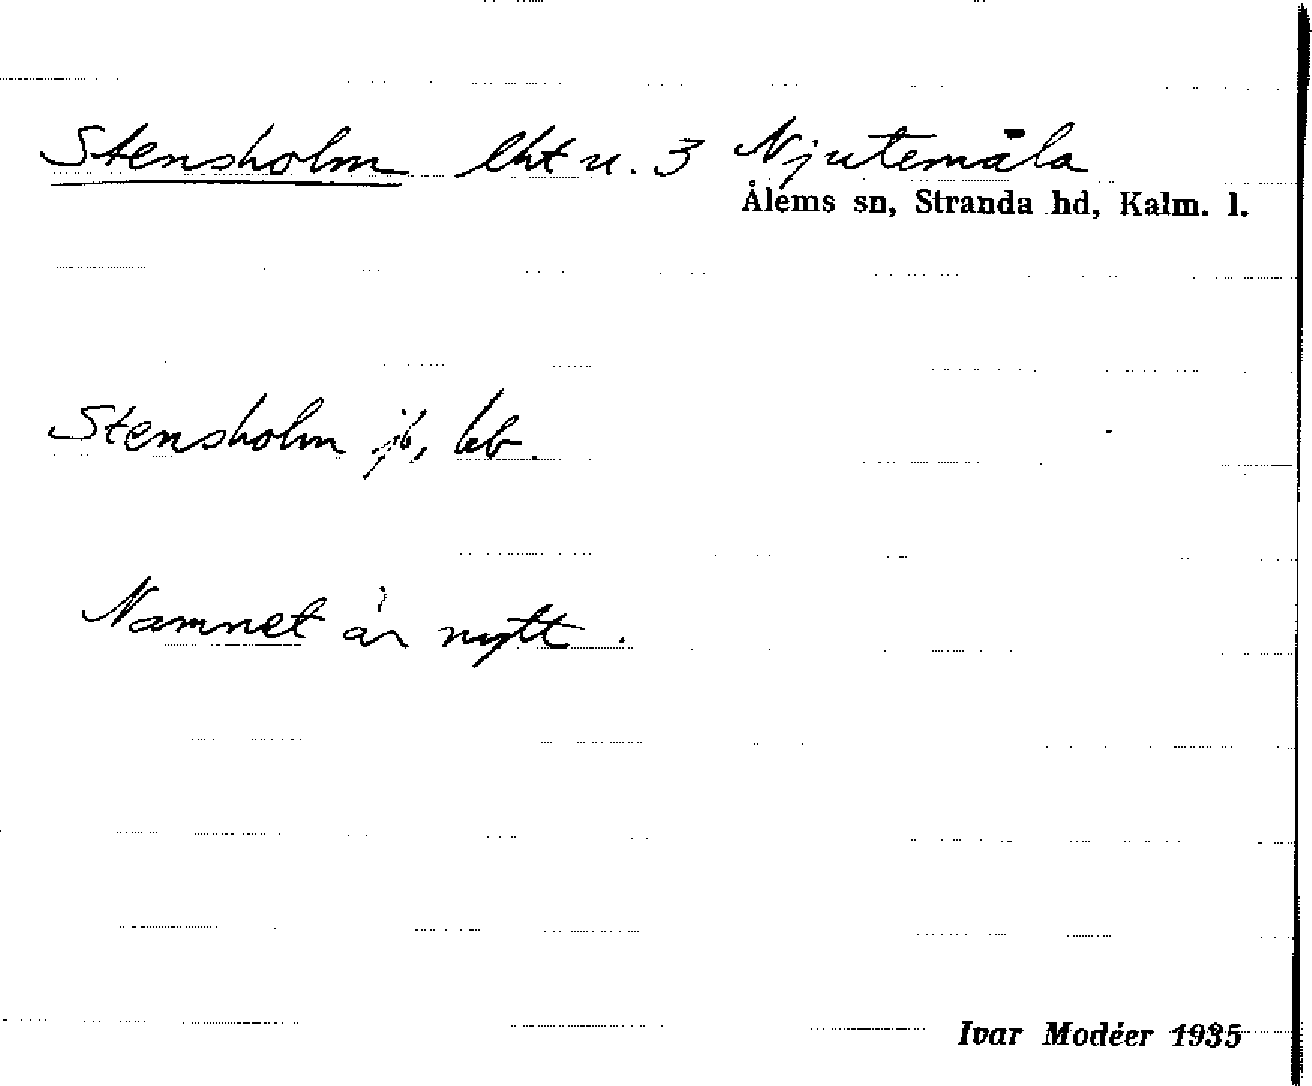 Stensholm lht u. 3 Njutemåla
Ålems sn, Stranda hd, Kalm. l.
Stensholm jb, kb.
Namnet är nytt.
Ivar Modéer 1935